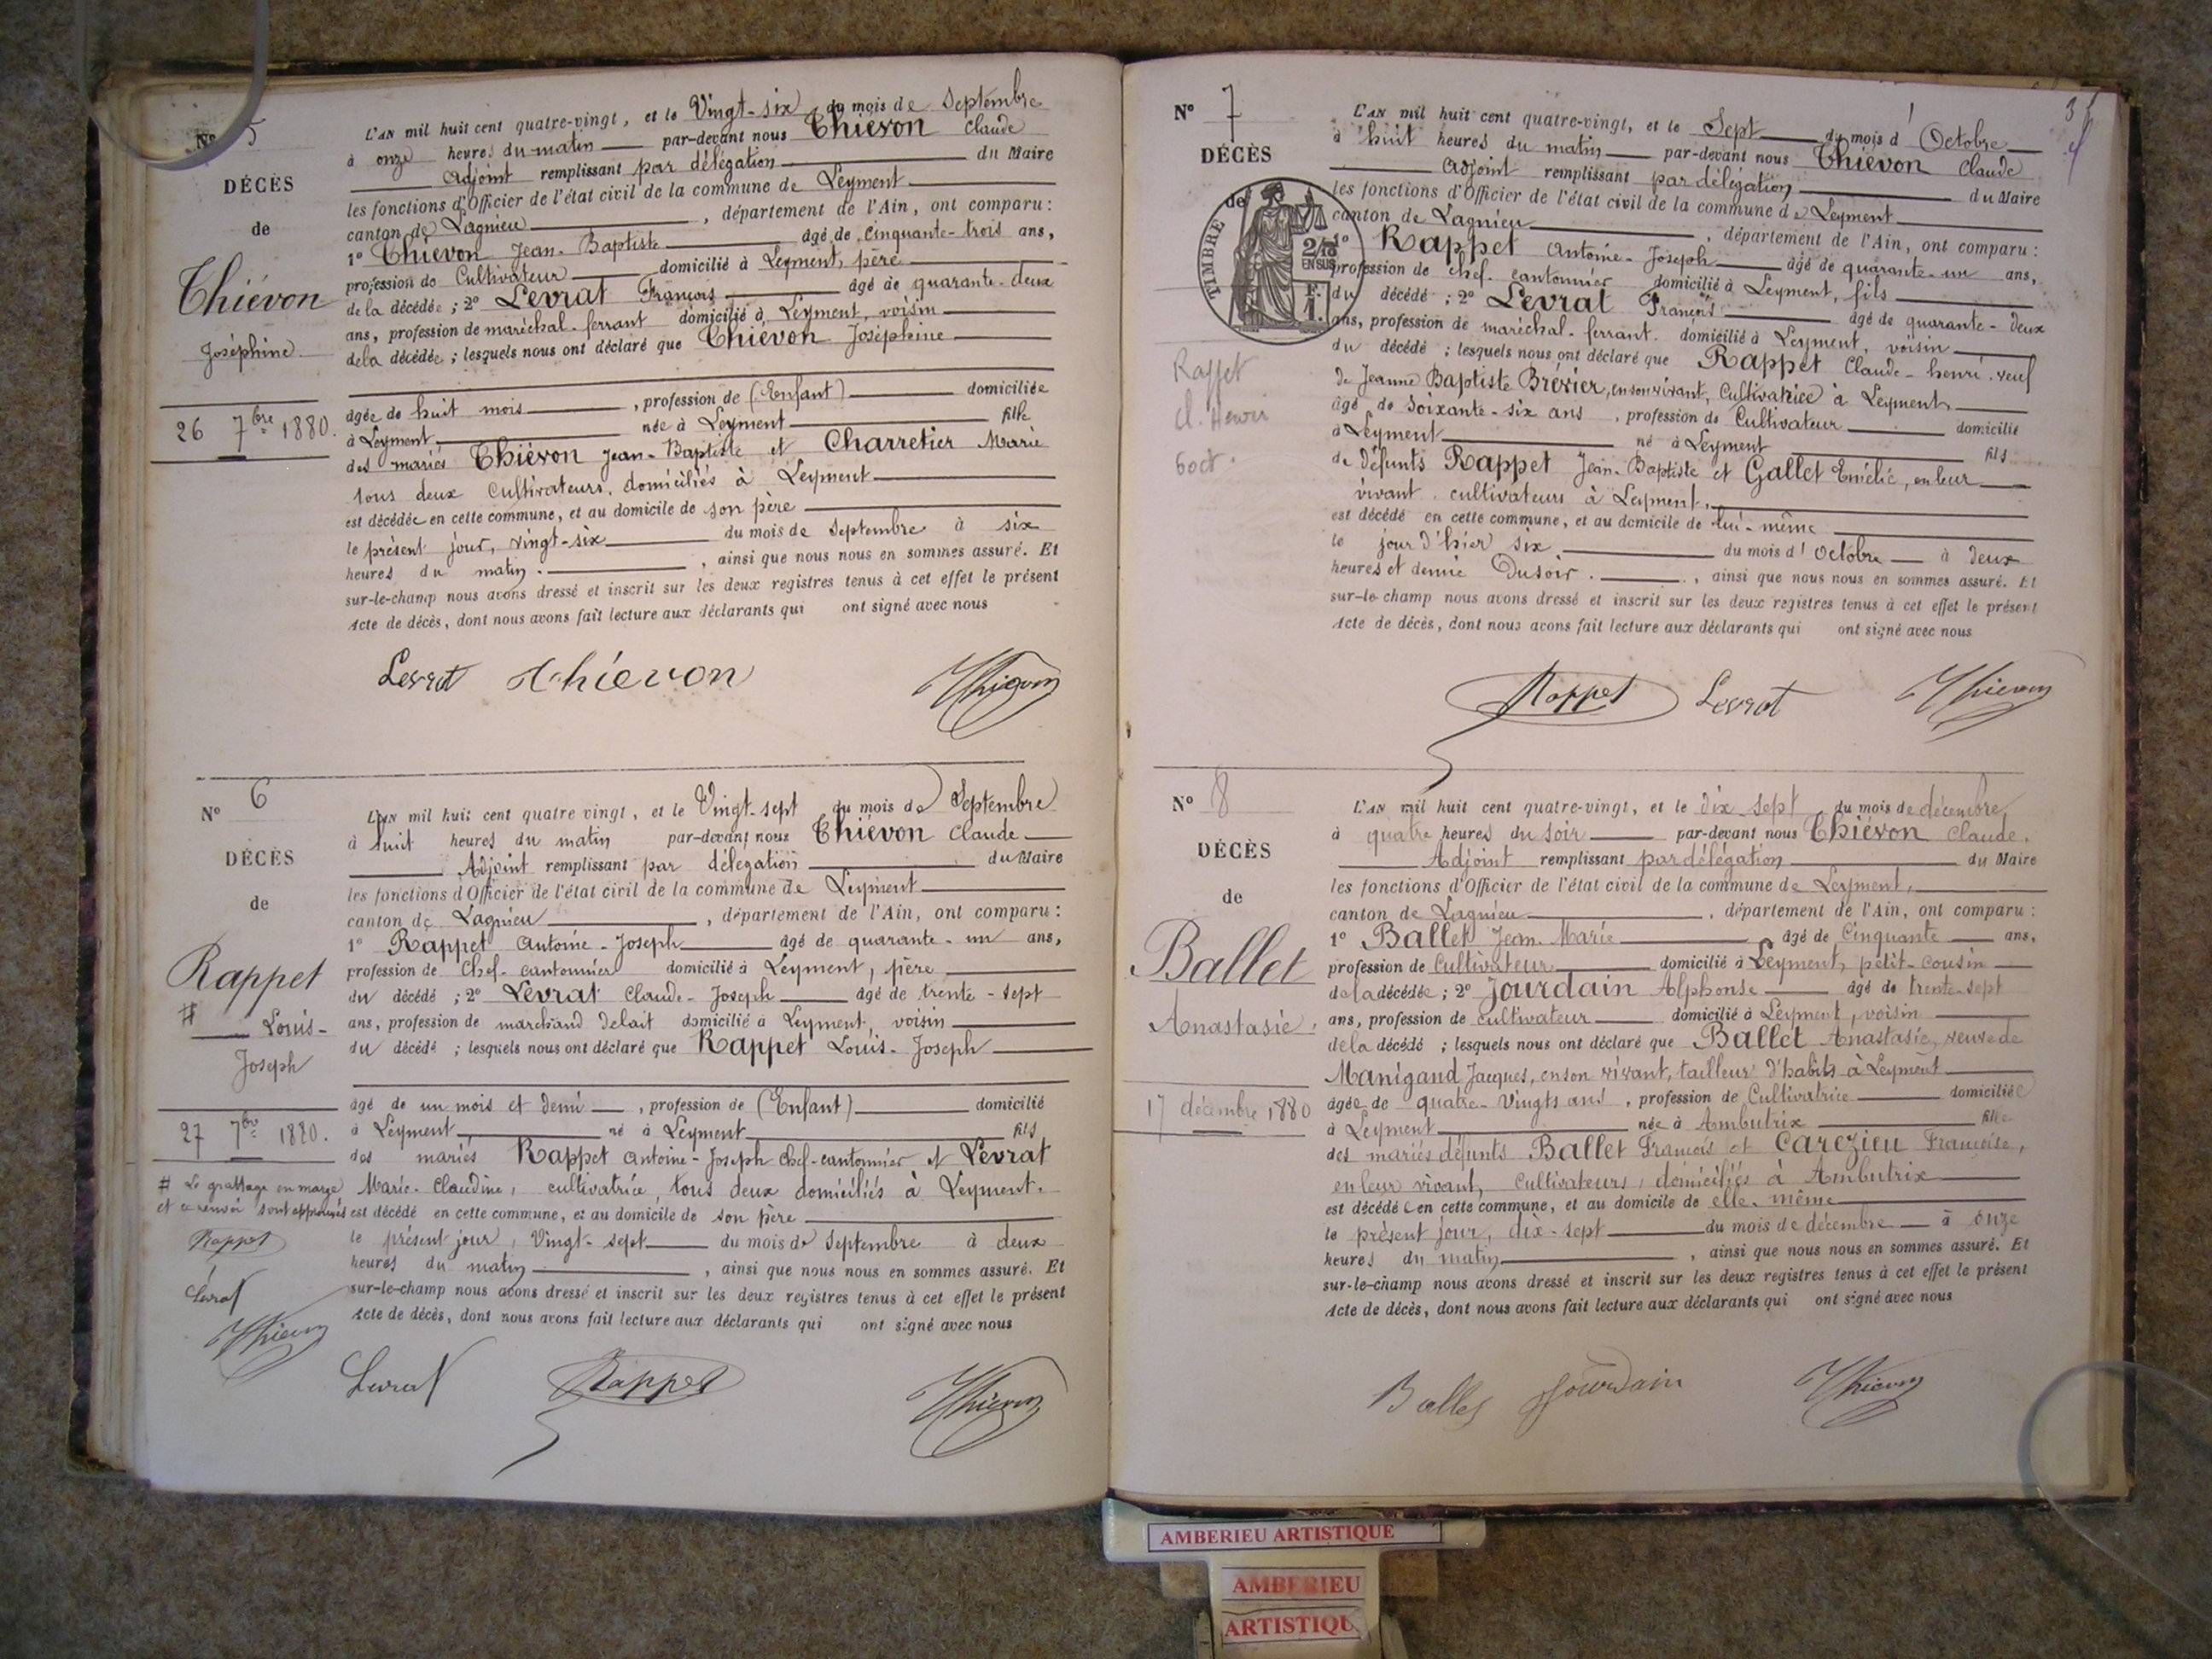 N° 5
DÉCÈS
de
Thiévon
Joséphine
26 7bre 1880.
L'AN mil huit cent quatre-vingt, et le Vingt-six du mois de Septembre
à onze heures du matin par-devant nous Thiévon Claude
Adjoint remplissant par délégation du Maire
les fonctions d'Officier de l'état civil de la commune de Leyment
canton de Lagnieu, département de l'Ain, ont comparu :
1° Thiévon Jean-Baptiste âgé de cinquante-trois ans,
profession de Cultivateur domicilié à Leyment, père
de la décédée ; 2° Levrat François âgé de quarante-deux
ans, profession de maréchal-ferrant domicilié à Leyment, voisin
de la décédée ; lesquels nous ont déclaré que Thiévon Joséphine
âgée de huit mois, profession de (Enfant) domiciliée
à Leyment née à Leyment fille
des mariés Thiévon Jean-Baptiste et Charretier Marie
tous deux Cultivateurs, domiciliés à Leyment
est décédée en cette commune, et au domicile de son père
le présent jour, vingt-six du mois de Septembre à six
heures du matin, ainsi que nous nous en sommes assuré. Et
sur-le-champ nous avons dressé et inscrit sur les deux registres tenus à cet effet le présent
Acte de décès, dont nous avons fait lecture aux déclarants qui ont signé avec nous
Levrat Thiévon Thievon
N° 6
DÉCÈS
de
Rappet
# Louis-
Joseph
27 7bre 1880.
# Le grattage en marge
et ce renvoi sont approuvés
Rappet
Levrat
Thievon
L'AN mil huit cent quatre vingt, et le Vingt-sept du mois de Septembre
à huit heures du matin par-devant nous Thiévon Claude
Adjoint remplissant par délégation du Maire
les fonctions d'Officier de l'état civil de la commune de Leyment
canton de Lagnieu, département de l'Ain, ont comparu :
1° Rappet Antoine-Joseph âgé de quarante-un ans,
profession de Chef-cantonnier domicilié à Leyment, père
du décédé ; 2° Levrat Claude-Joseph âgé de trente-sept
ans, profession de marchand de lait domicilié à Leyment, voisin
du décédé ; lesquels nous ont déclaré que Rappet Louis-Joseph
âgé de un mois et demi, profession de (Enfant) domicilié
à Leyment né à Leyment fils
des mariés Rappet Antoine-Joseph Chef-cantonnier et Levrat
Marie-Claudine, cultivatrice, tous deux domiciliés à Leyment.
est décédé en cette commune, et au domicile de son père
le présent jour, Vingt-sept du mois de Septembre à deux
heures du matin, ainsi que nous nous en sommes assuré. Et
sur-le-champ nous avons dressé et inscrit sur les deux registres tenus à cet effet le présent
Acte de décès, dont nous avons fait lecture aux déclarants qui ont signé avec nous
Levrat Rappet Thievon
N° 7
DÉCÈS
de
TIMBRE
2/10
EN SUS
1 F.
Rappet
Cl. Henri
6 oct.
L'AN mil huit cent quatre-vingt, et le Sept du mois d'Octobre
à huit heures du matin par-devant nous Thiévon Claude
Adjoint remplissant par délégation du Maire
les fonctions d'Officier de l'état civil de la commune de Leyment
canton de Lagnieu, département de l'Ain, ont comparu :
1° Rappet Antoine-Joseph âgé de quarante-un ans,
profession de chef-cantonnier domicilié à Leyment, fils
du décédé ; 2° Levrat François âgé de quarante-deux
ans, profession de maréchal-ferrant. domicilié à Leyment, voisin
du décédé ; lesquels nous ont déclaré que Rappet Claude-henri, veuf
de Jeanne Baptiste Brévier, en son vivant, Cultivatrice à Leyment
âgé de Soixante-six ans, profession de Cultivateur domicilié
à Leyment né à Leyment fils
de défunts Rappet Jean-Baptiste et Gallet Emélie, en leur
vivant cultivateurs à Leyment,
est décédé en cette commune, et au domicile de lui-même
le jour d'hier six du mois d'Octobre à deux
heures et demie Du soir, ainsi que nous nous en sommes assuré. Et
sur-le-champ nous avons dressé et inscrit sur les deux registres tenus à cet effet le présent
Acte de décès, dont nous avons fait lecture aux déclarants qui ont signé avec nous
Rappet Levrat Thievon
N° 8
DÉCÈS
de
Ballet
Anastasie.
17 décembre 1880
L'AN mil huit cent quatre-vingt, et le dix-sept du mois de décembre
à quatre heures du soir par-devant nous Thiévon Claude.
Adjoint remplissant par délégation du Maire
les fonctions d'Officier de l'état civil de la commune de Leyment,
canton de Lagnieu, département de l'Ain, ont comparu :
1° Ballet Jean-Marie âgé de Cinquante ans,
profession de Cultivateur domicilié à Leyment, petit-cousin
de la décédée ; 2° Jourdain Alphonse âgé de trente-sept
ans, profession de cultivateur domicilié à Leyment, voisin
de la décédé ; lesquels nous ont déclaré que Ballet Anastasie, veuve de
Manigand Jacques, en son vivant, tailleur d'habits à Leyment
âgée de quatre-Vingts ans, profession de Cultivatrice domiciliée
à Leyment née à Ambutrix fille
des mariés défunts Ballet François et Carezieu Françoise,
en leur vivant, Cultivateurs, domiciliés à Ambutrix
est décédée en cette commune, et au domicile de elle-même
le présent jour, dix-sept du mois de décembre à onze
heures du matin, ainsi que nous nous en sommes assuré. Et
sur-le-champ nous avons dressé et inscrit sur les deux registres tenus à cet effet le présent
Acte de décès, dont nous avons fait lecture aux déclarants qui ont signé avec nous
Ballet Jourdain Thievon
AMBERIEU ARTISTIQUE
AMBERIEU
ARTISTIQU